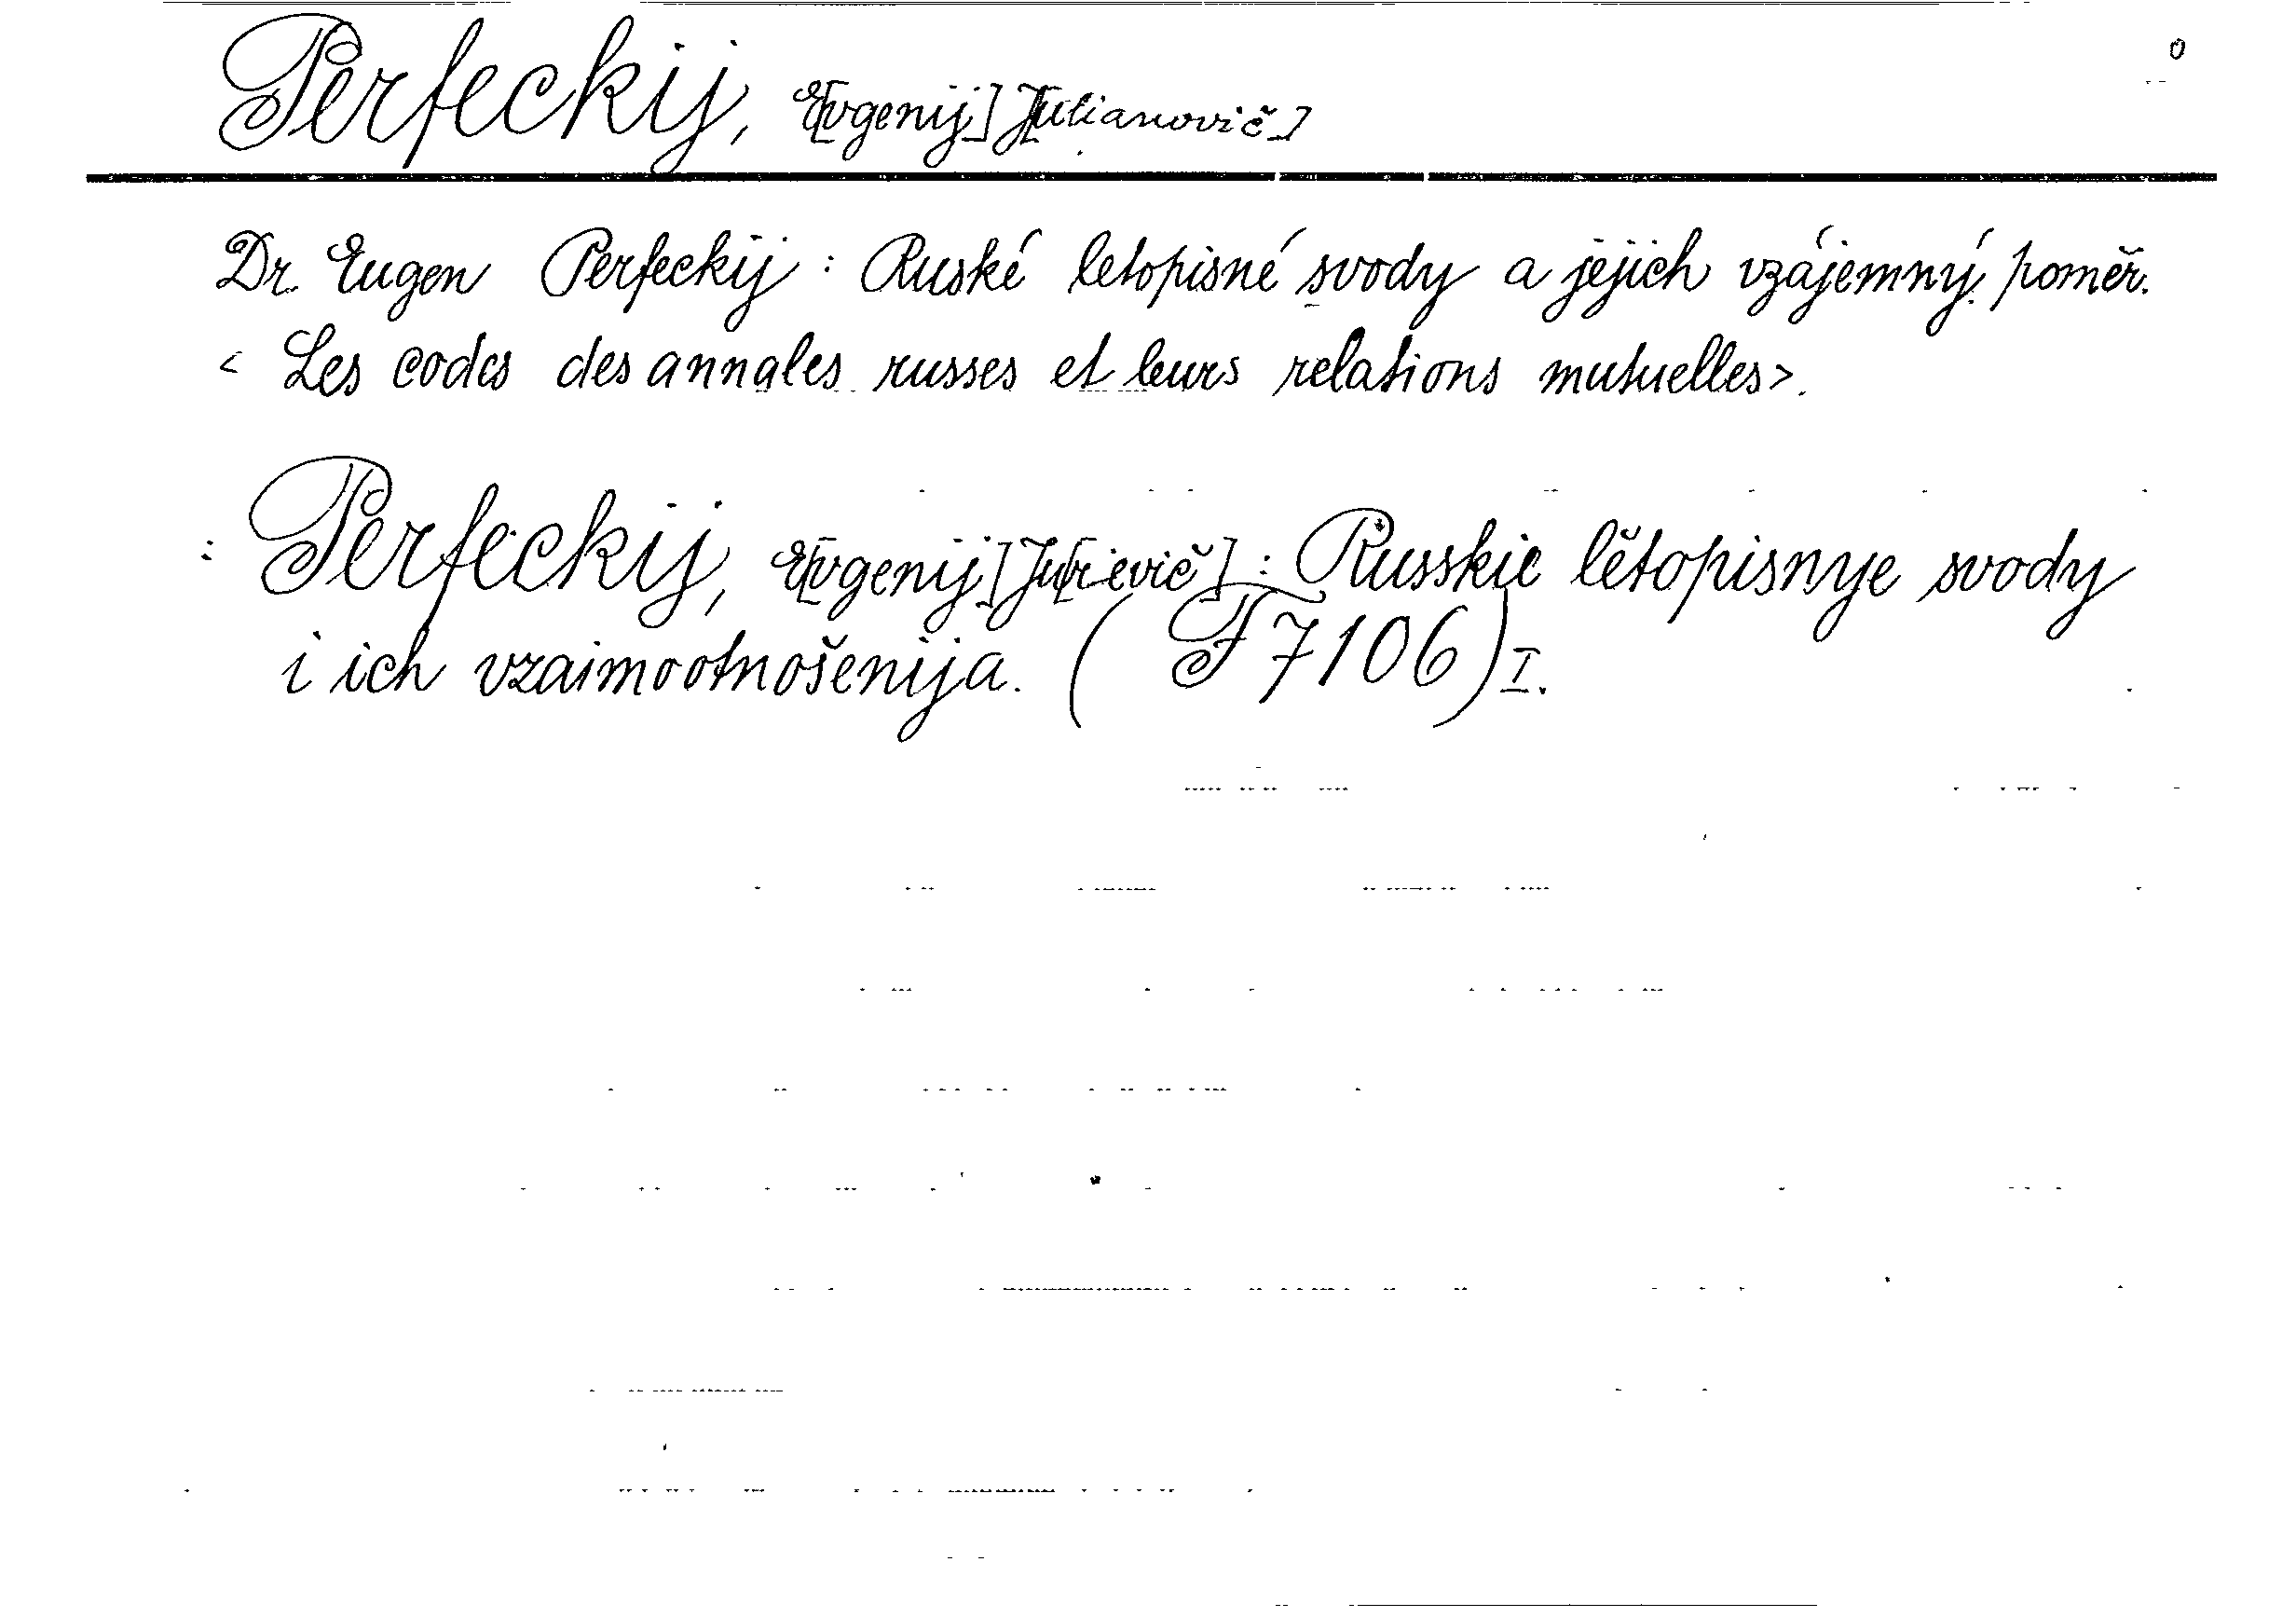 0
Perfeckij, E[vgenij] J[ulianovič]
Dr. Eugen Perfeckij : Ruské letopisné svody a jejich vzájemný poměr.
< Les codes des annales russes et leurs relations mutuelles>.
: Perfeckij, E[vgenij] Ju[rievič] : Russkie lětopisnye svody
i ich vzaimootnošenija. ( F 7106) I.